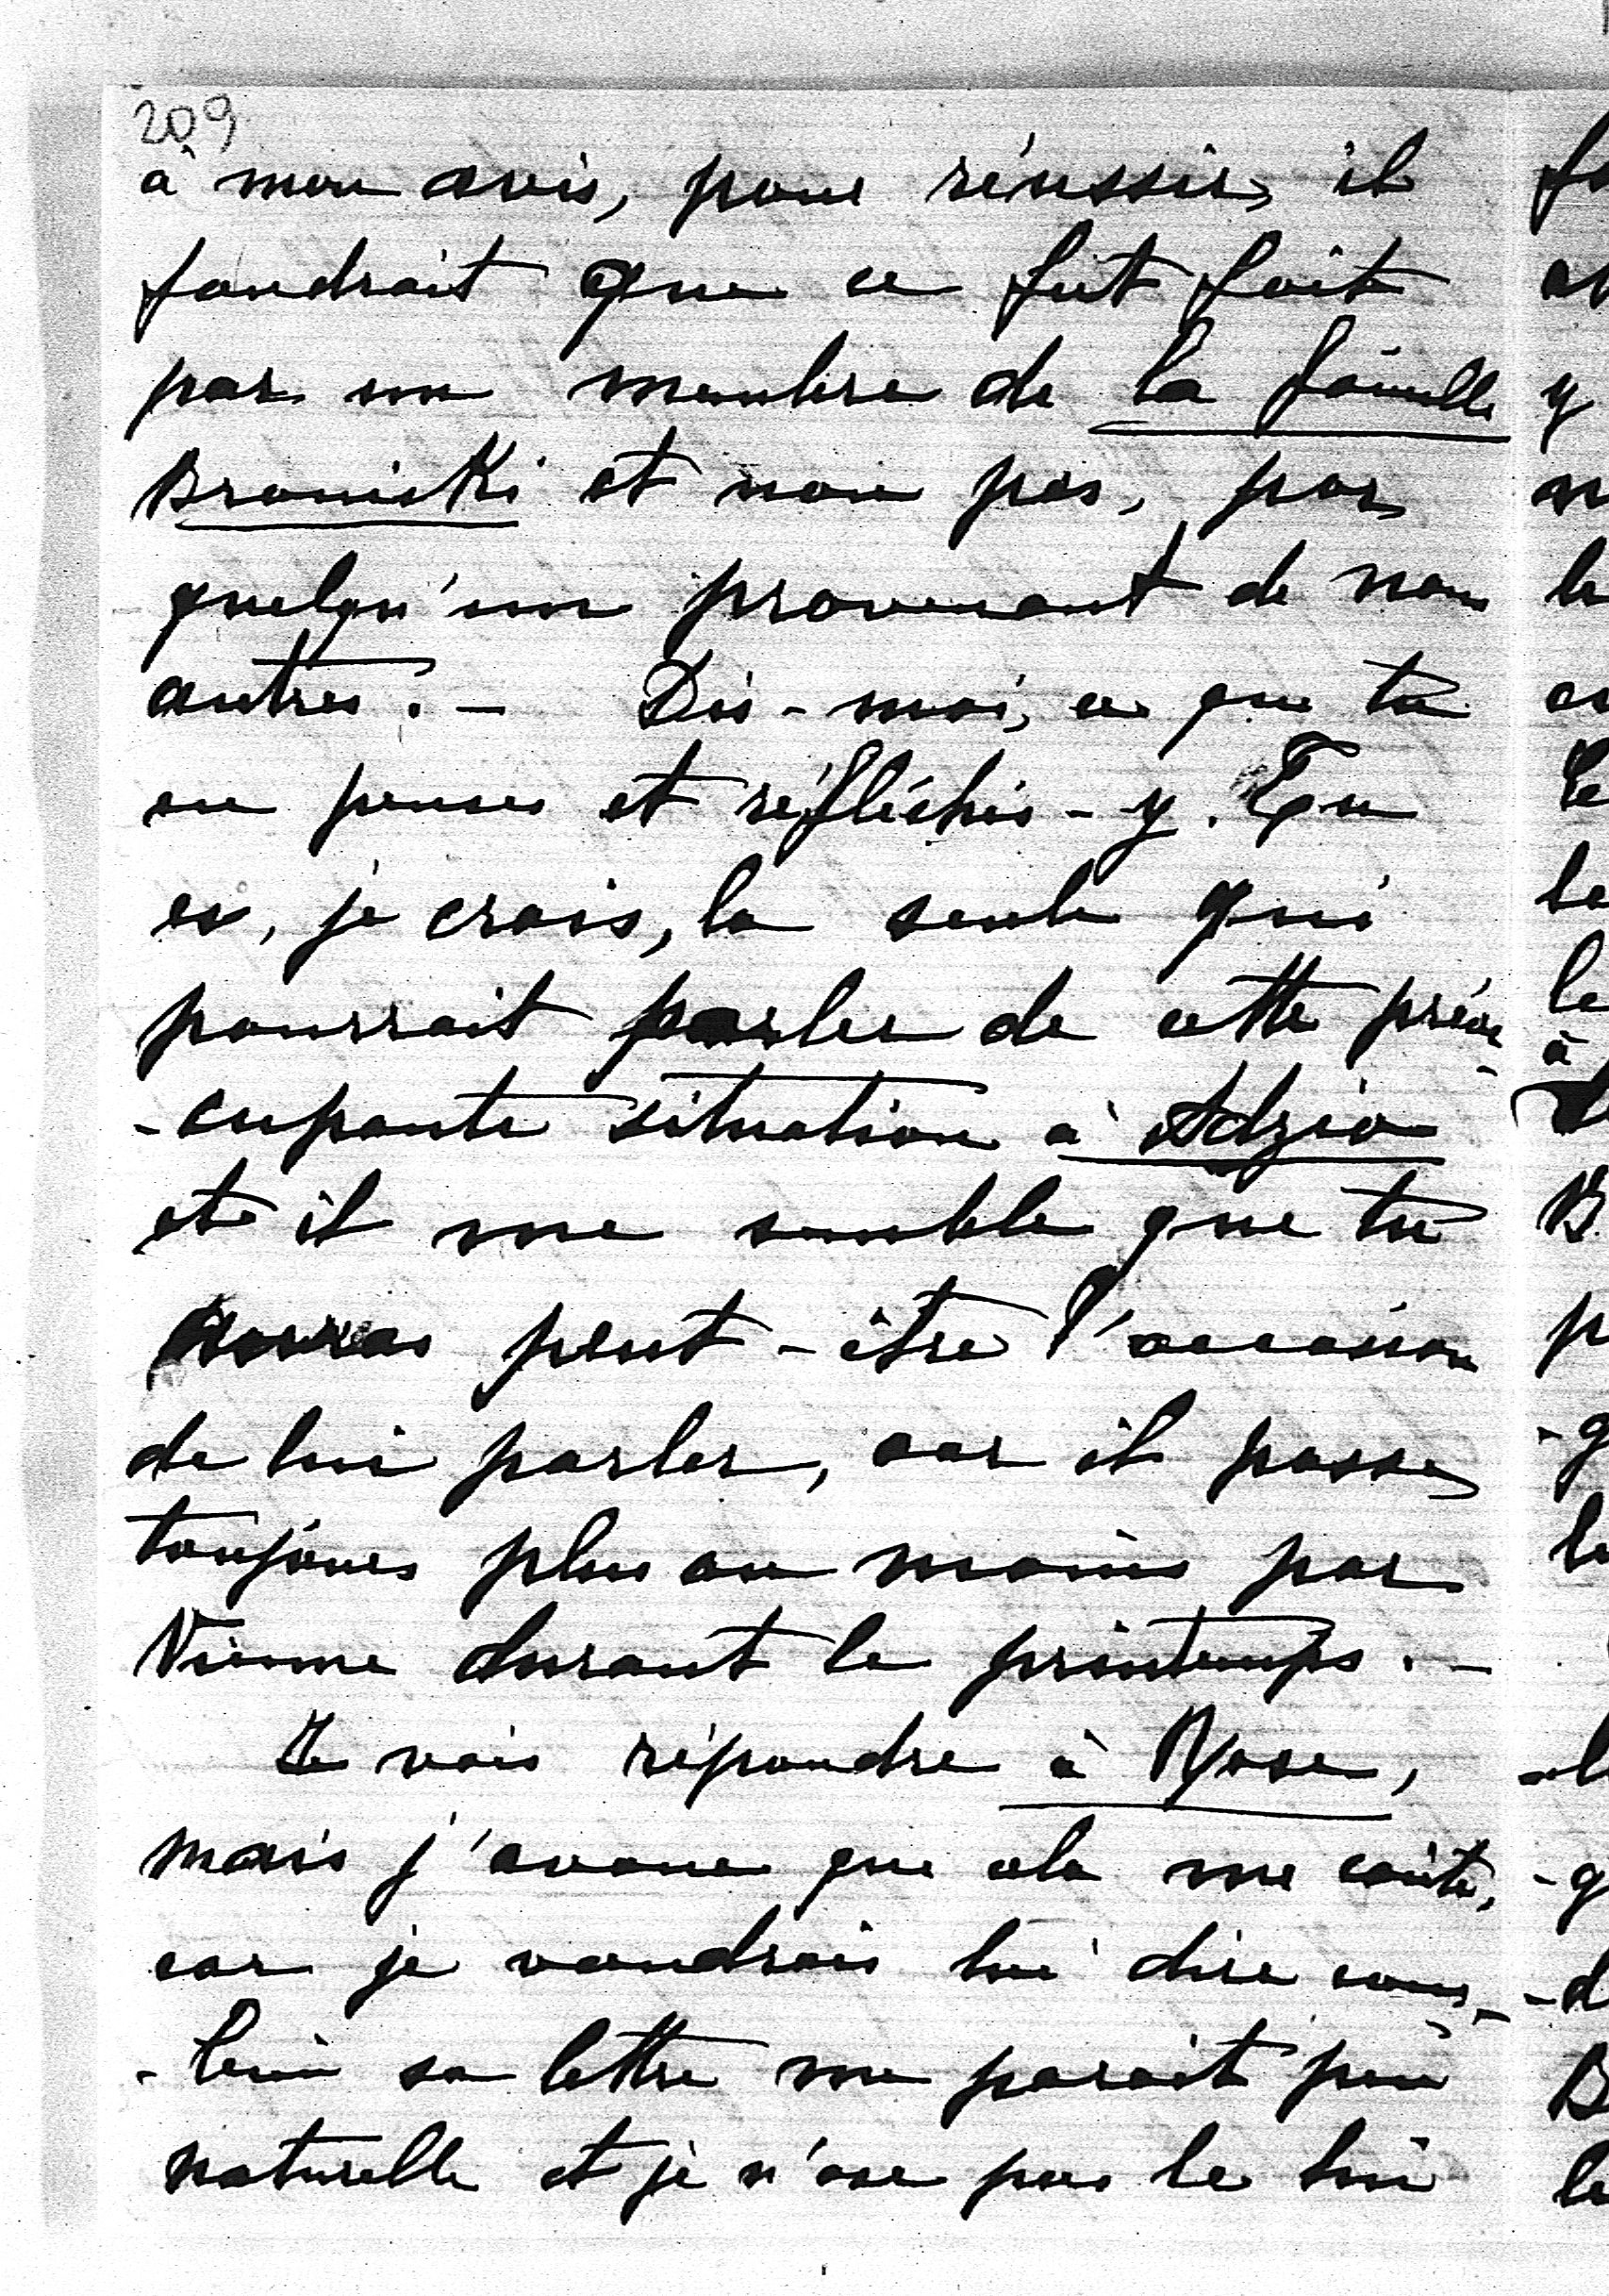 209
à mon avis, pour réussir, il
faudrait que ce fut fait
par un membre de la famille
Broniski et non pas, par
quelqu'un provenant de nous
autres. — Dis-moi, ce que tu
en penses et réfléchis-y. Tu
es, je crois, la seule qui
pourrait parler de cette préoc
-cupante situation à Adzio
et il me semble que tu
auras peut-être l'occasion
de lui parler, car il passe
toujours plus ou moins par
Vienne durant le printemps. —
Je vais répondre à Rose,
mais j'avoue que cela me coûte,
car je voudrais lui dire com-
-bien sa lettre me parait peu
naturelle et je n'ose pas le lui